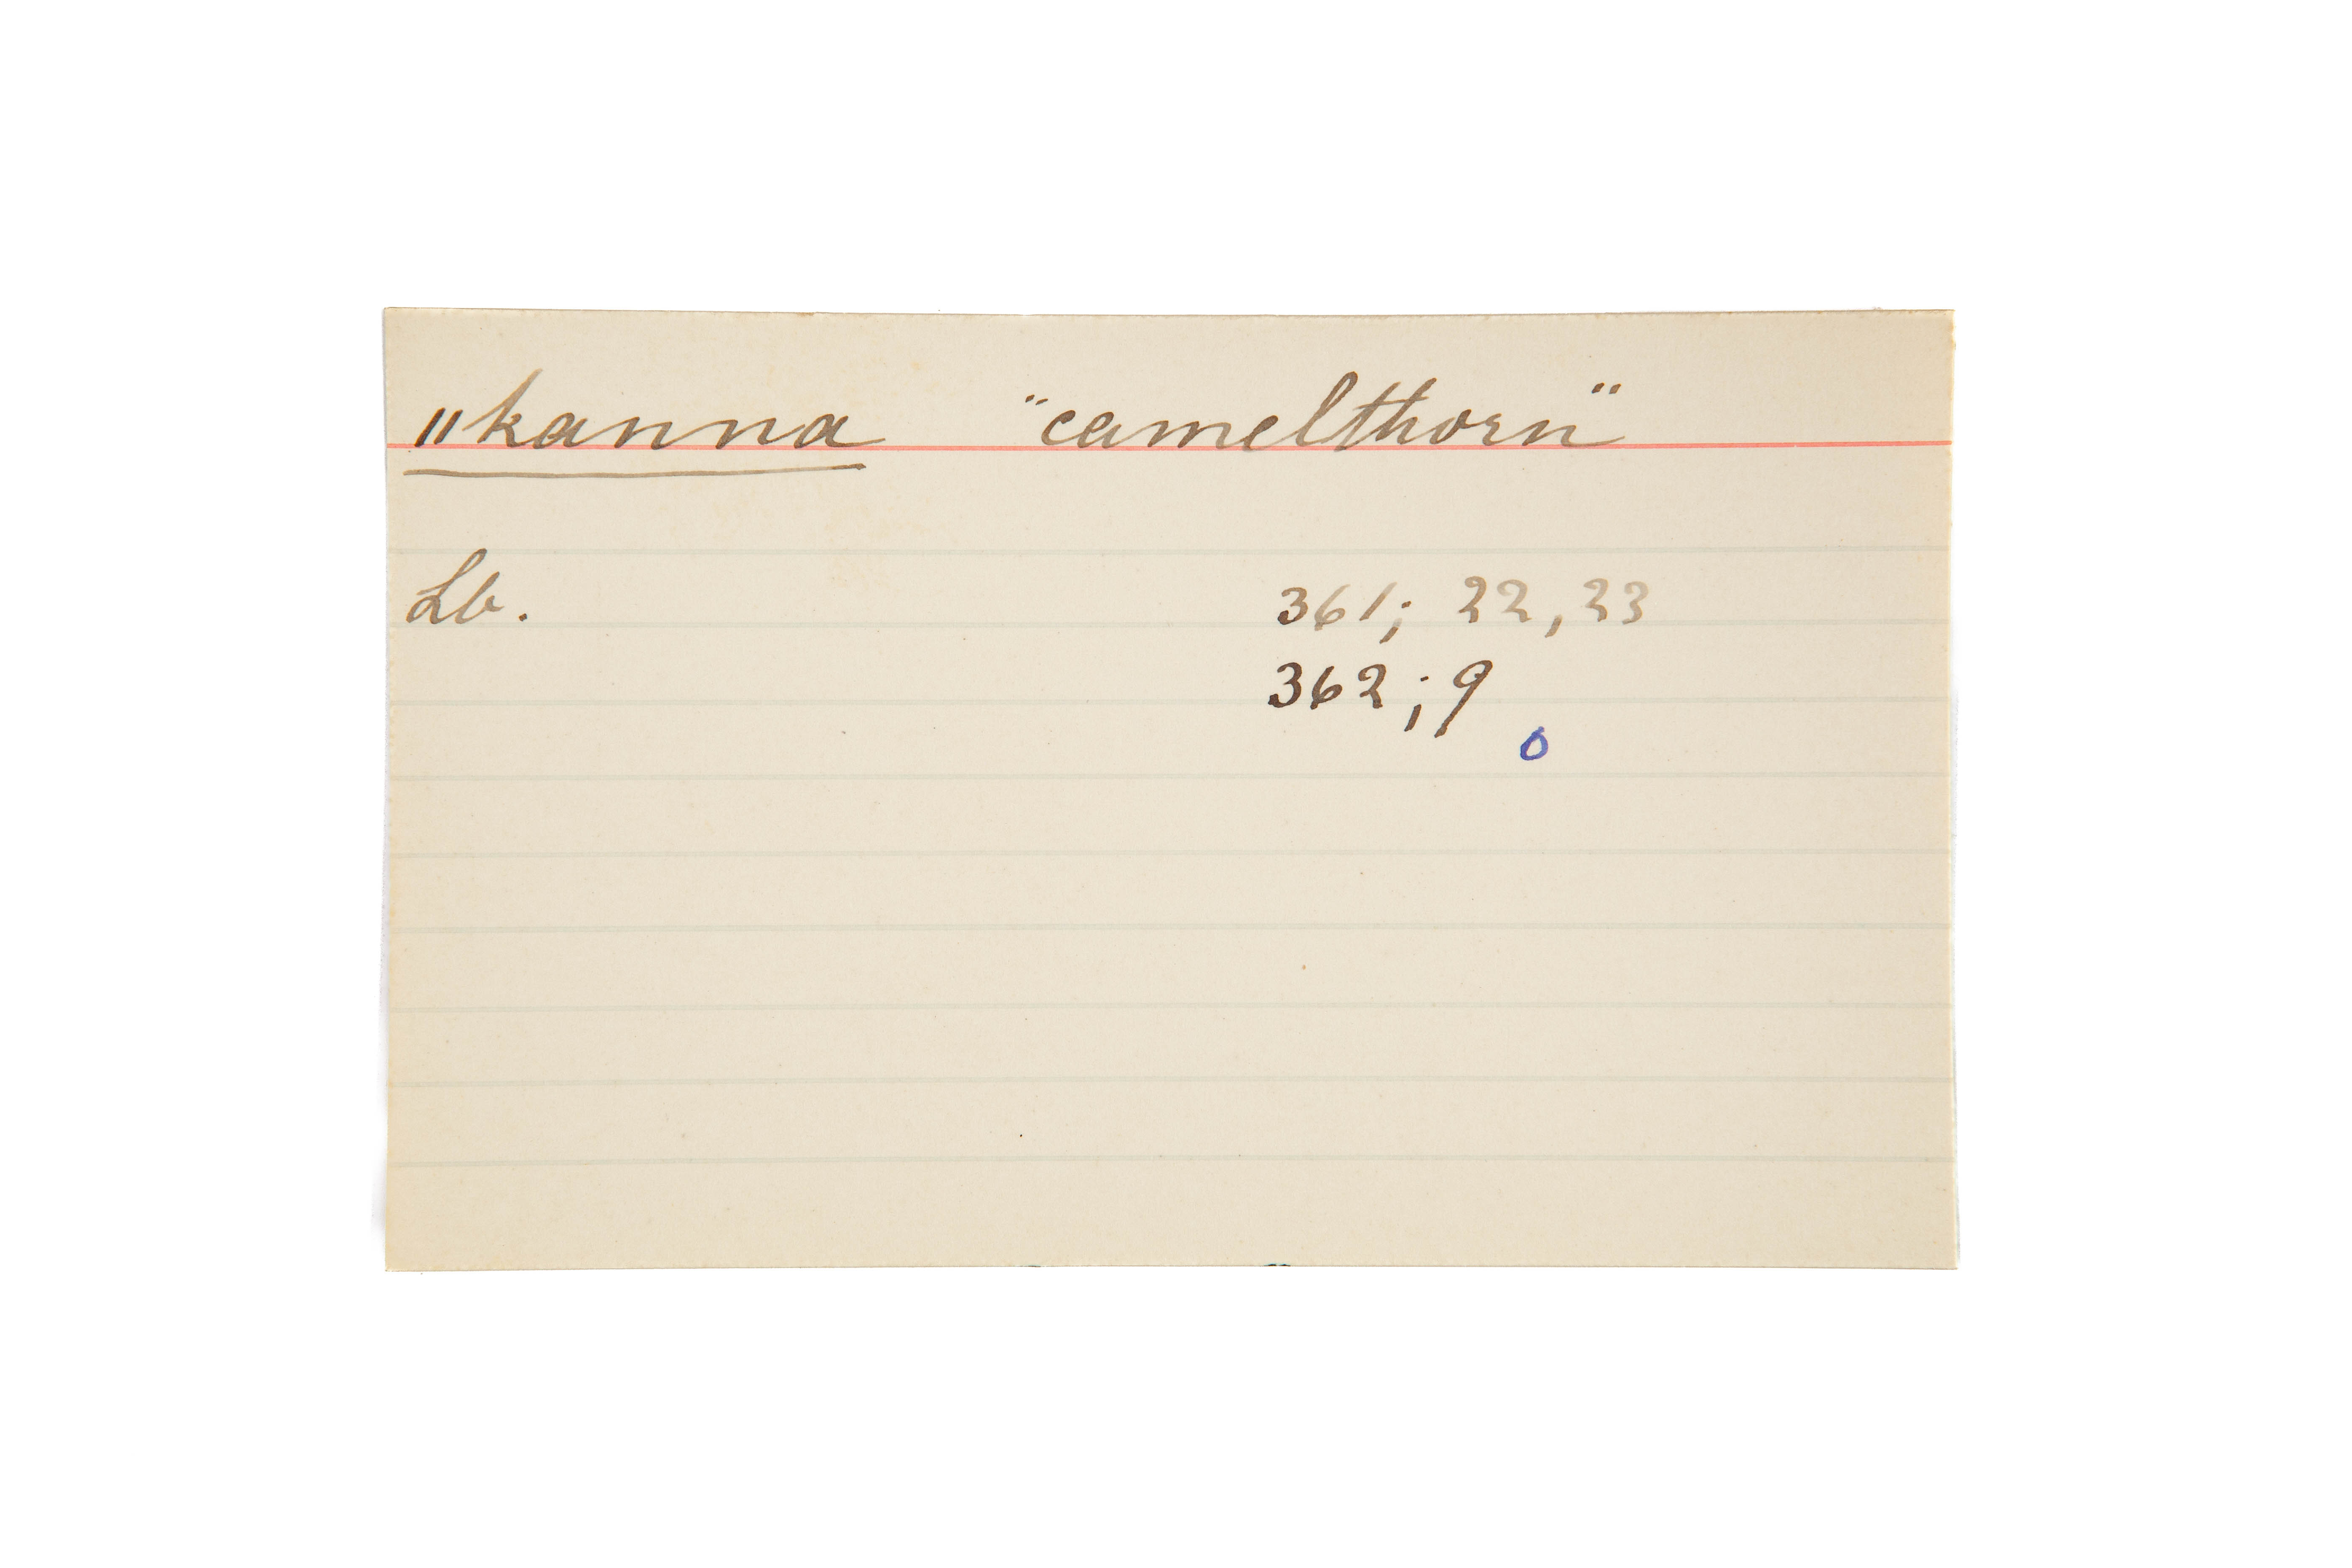 ǁkanna "camelthorn"
Lb. 361; 22, 23
362; 9
o